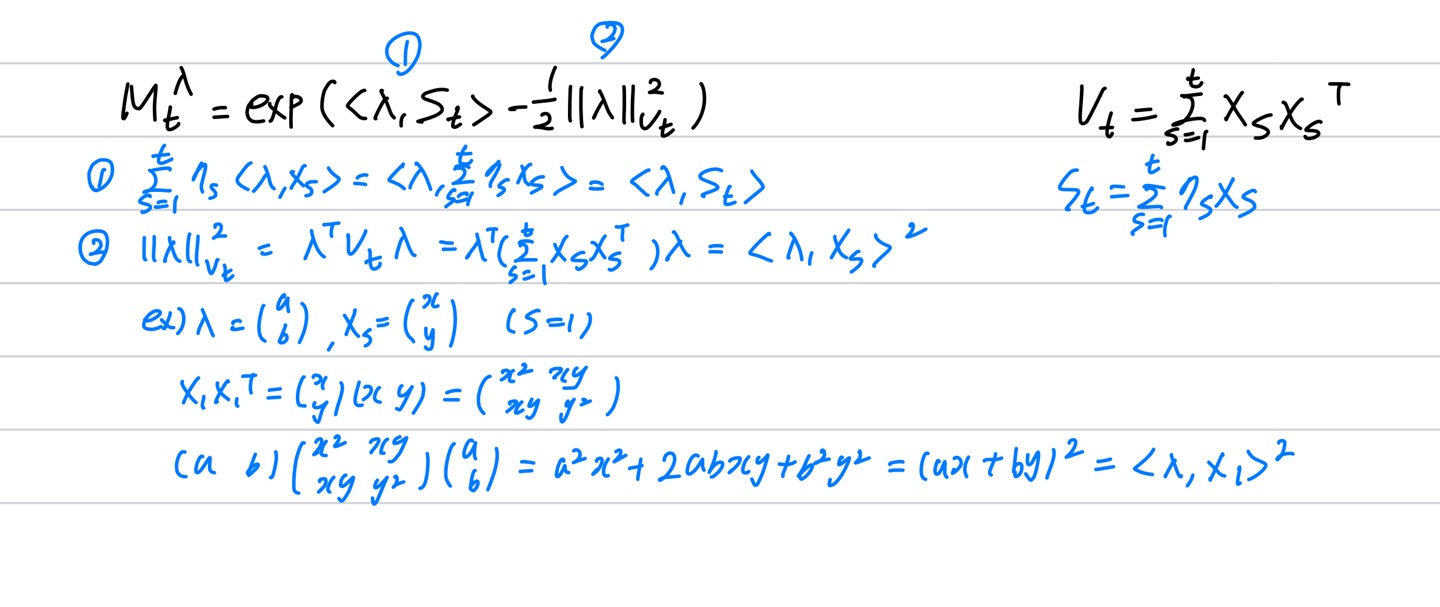 ① ②
M_t^λ = exp(<λ, S_t> - 1/2 ||λ||²_{V_t}) V_t = Σ_{s=1}^{t} X_s X_s^T
① Σ_{s=1}^{t} η_s <λ, X_s> = <λ, Σ_{s=1}^{t} η_s X_s> = <λ, S_t> S_t = Σ_{s=1}^{t} η_s X_s
② ||λ||²_{V_t} = λ^T V_t λ = λ^T (Σ_{s=1}^{t} X_s X_s^T) λ = <λ, X_s>²
ex) λ = (a b), X_s = (x y) (s=1)
X_1 X_1^T = (x y)(x y) = (x² xy xy y²)
(a b)(x² xy xy y²)(a b) = a²x² + 2abxy + b²y² = (ax + by)² = <λ, X_1>²